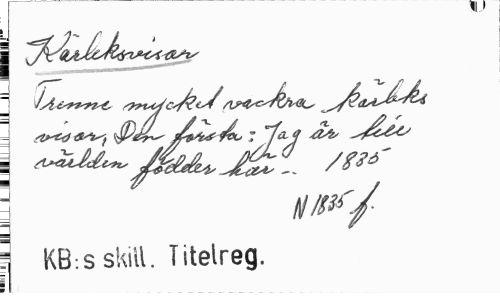 Kärleksvisor
Trenne mycket vackra kärleks
visor, Den första: Jag är till
världen födder här -. 1835
N 1835 f.
KB:s skill. Titelreg.